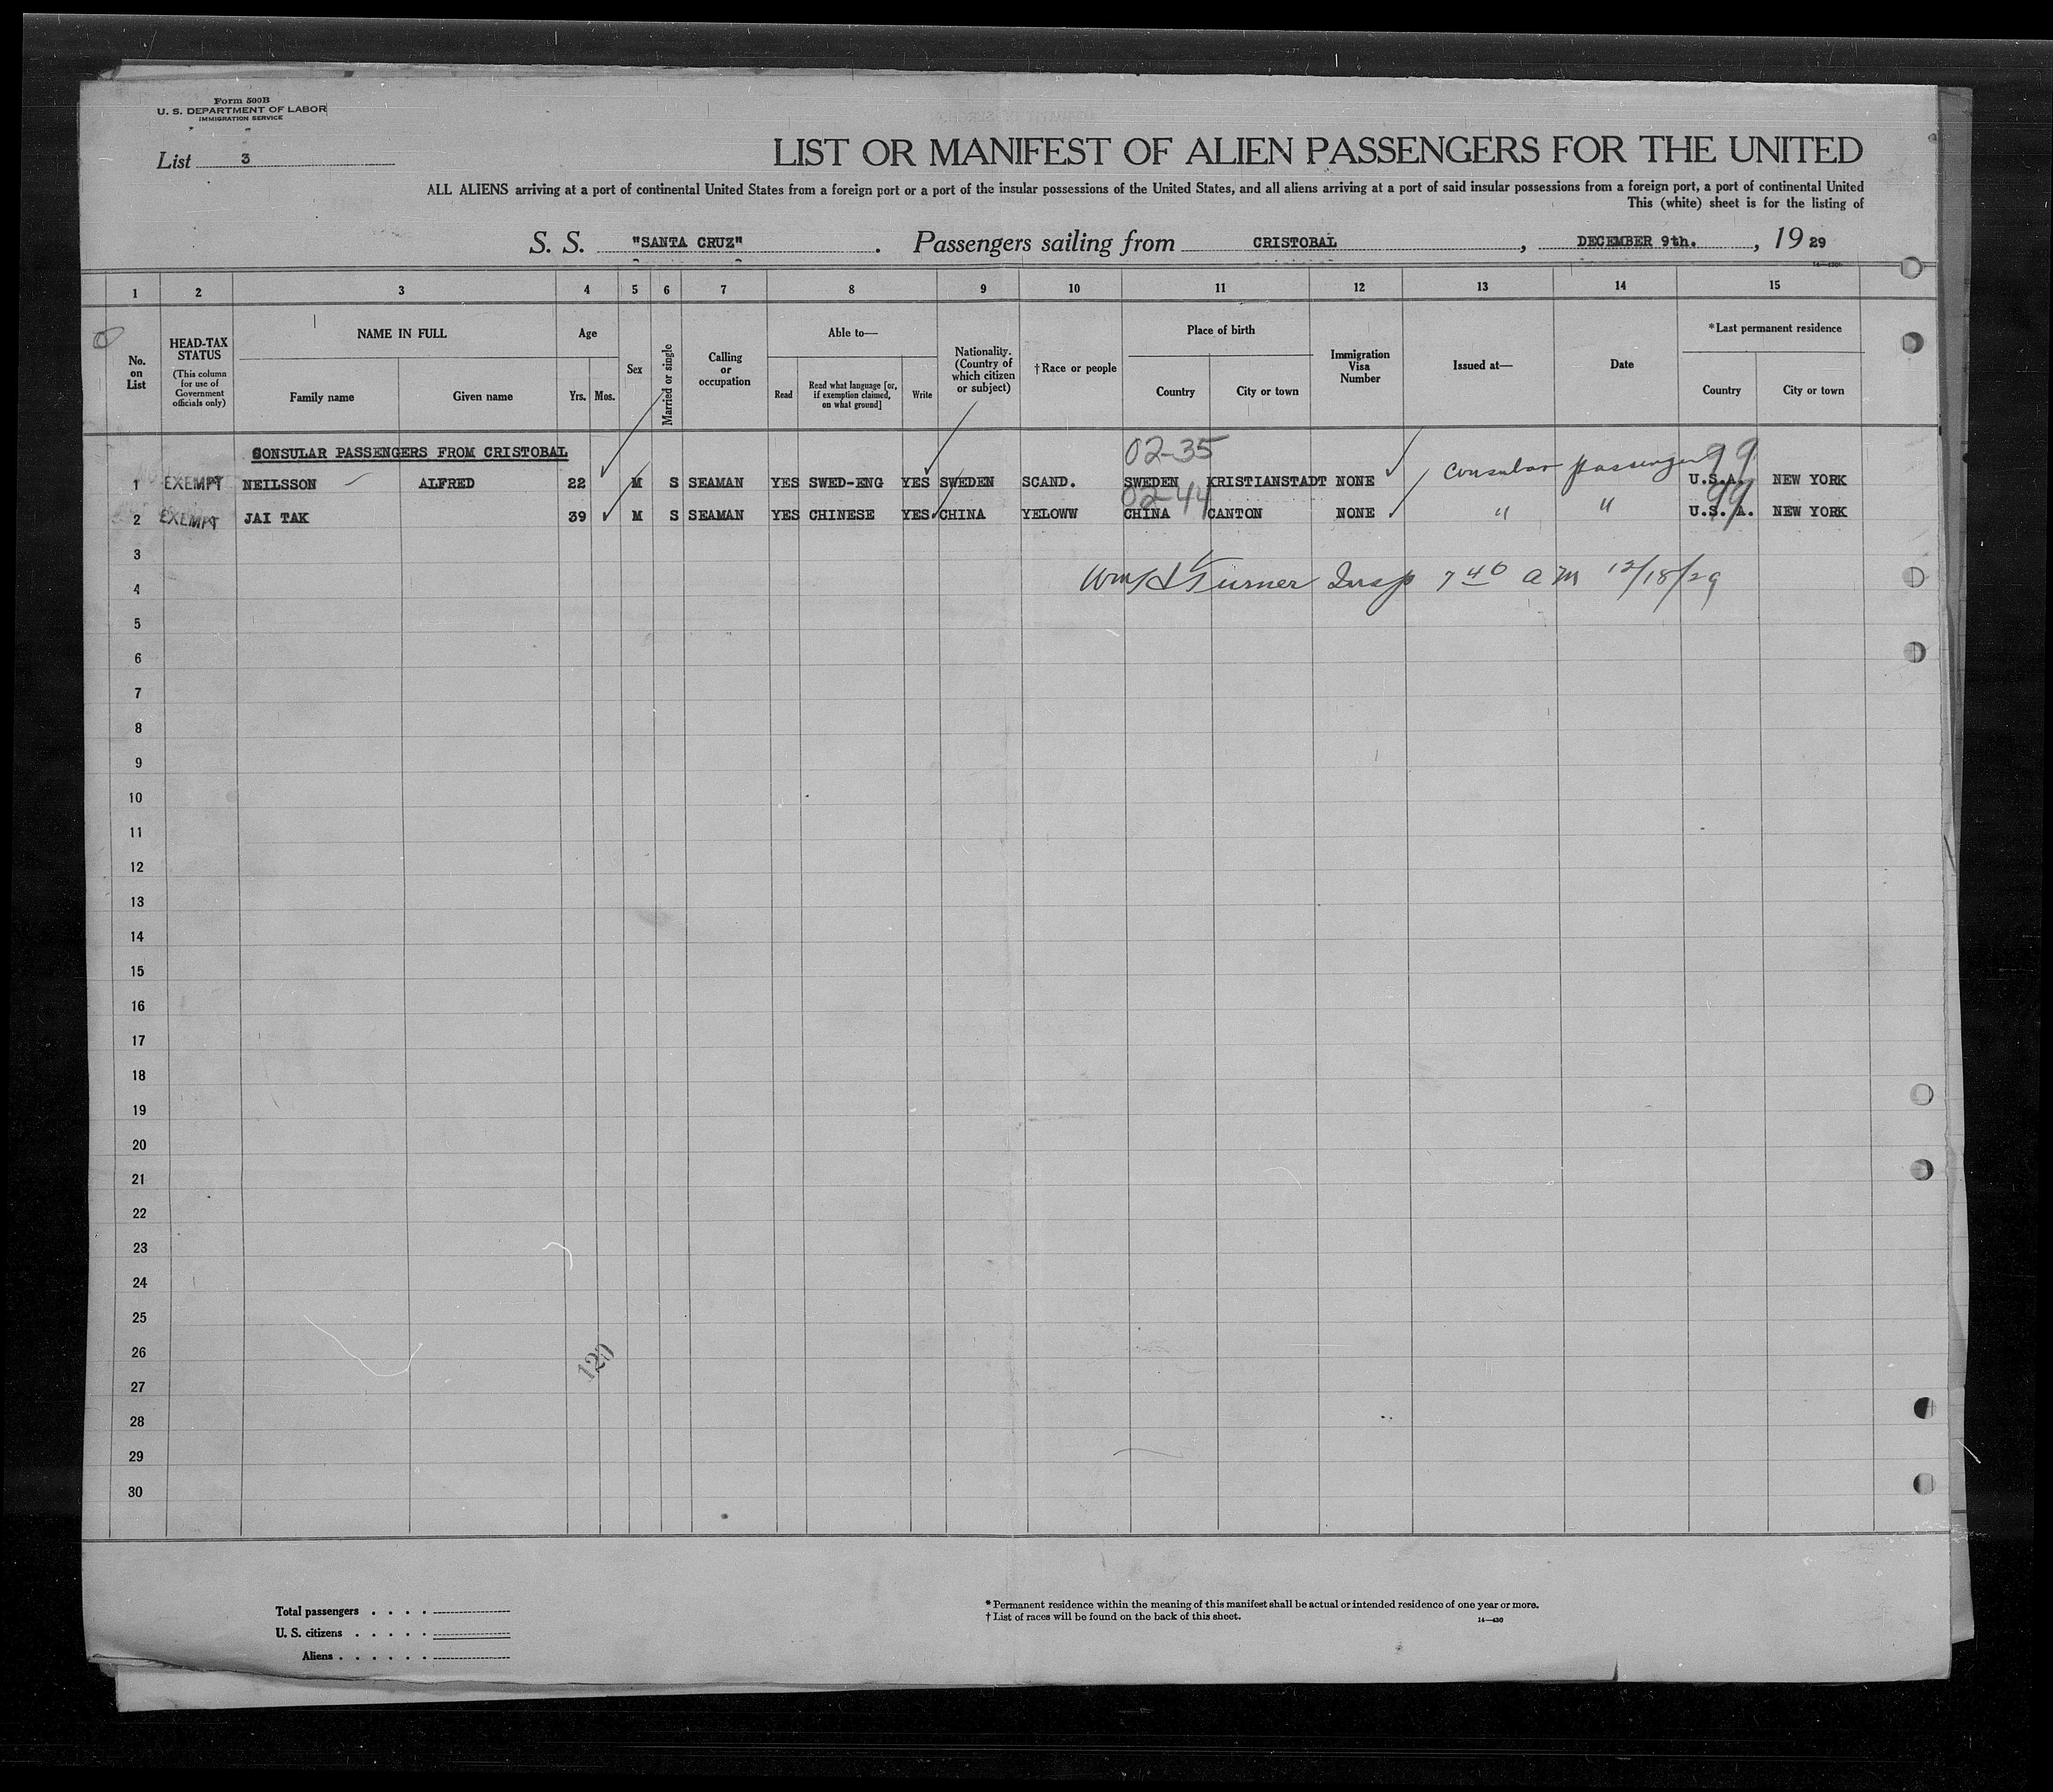 Form 500B
U. S. DEPARTMENT OF LABOR
IMMIGRATION SERVICE
List 3
LIST OR MANIFEST OF ALIEN PASSENGERS FOR THE UNITED
ALL ALIENS arriving at a port of continental United States from a foreign port or a port of the insular possessions of the United States, and all aliens arriving at a port of said insular possessions from a foreign port, a port of continental United
This (white) sheet is for the listing of
S. S. "SANTA CRUZ". Passengers sailing from CRISTOBAL, DECEMBER 9th., 1929
1 2 3 4 5 6 7 8 9 10 11 12 13 14 15
No. on List
HEAD-TAX STATUS
(This column for use of Government officials only)
NAME IN FULL
Family name
Given name
Age
Yrs. Mos.
Sex
Married or single
Calling or occupation
Able to—
Read
Read what language [or, if exemption claimed, on what ground]
Write
Nationality. (Country of which citizen or subject)
†Race or people
Place of birth
Country
City or town
Immigration Visa Number
Issued at—
Date
*Last permanent residence
Country
City or town
CONSULAR PASSENGERS FROM CRISTOBAL
02-35 99
1 EXEMPT NEILSSON ALFRED 22 M S SEAMAN YES SWED-ENG YES SWEDEN SCAND. SWEDEN KRISTIANSTADT NONE Consular passenger U.S.A. NEW YORK
02-44 99
2 EXEMPT JAI TAK 39 M S SEAMAN YES CHINESE YES CHINA YELOWW CHINA CANTON NONE " " U.S.A. NEW YORK
3
Wm H Turner Insp 7 40 a m 12/18/29
4
5
6
7
8
9
10
11
12
13
14
15
16
17
18
19
20
21
22
23
24
25
26
120
27
28
29
30
Total passengers . . . .
U. S. citizens . . . . .
Aliens . . . . . .
* Permanent residence within the meaning of this manifest shall be actual or intended residence of one year or more.
† List of races will be found on the back of this sheet.
14—430